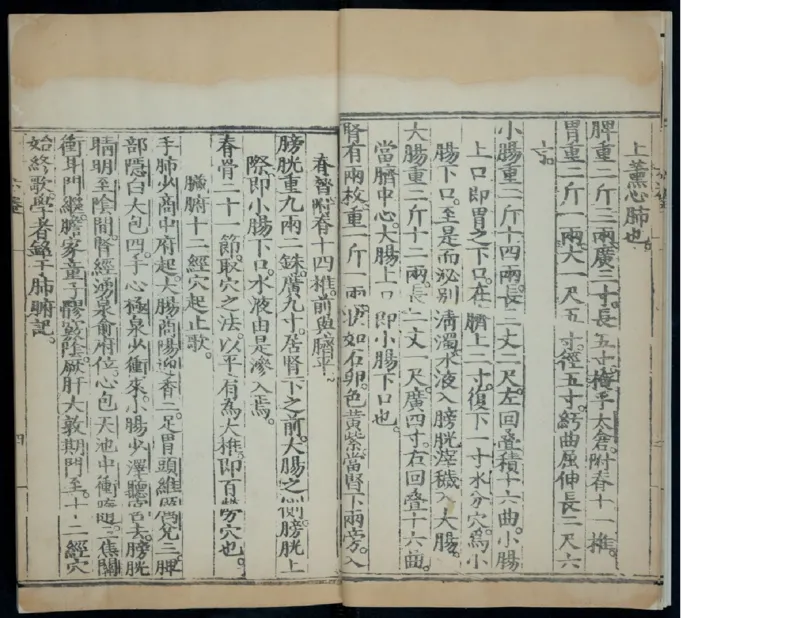 上薰心肺也。
脾重二斤三兩。廣三寸。長五寸。掩乎太倉。附脊十一椎。
胃重二斤一兩。大一尺五寸。徑五寸。紆曲屈伸長二尺六
寸。
小腸重二斤十四兩。長二丈二尺。左回疊積十六曲。小腸
上口即胃之下口。在臍上二寸。復下一寸水分穴。為小
腸下口。至是而泌別清濁。水液入膀胱。滓穢入大腸。
大腸重二斤十二兩。長二丈一尺。廣四寸。右回疊十六曲。
當臍中心。大腸上口即小腸下口也。
腎有兩枚。重一斤一兩。狀如石卵。色黃紫。當腎下兩旁。入
脊膂附脊十四椎。前與臍平。
膀胱重九兩二銖。廣九寸。居腎下之前。大腸之側。膀胱上
際。即小腸下口。水液由是滲入焉。
脊骨二十一節。取穴之法。以平肩為大椎。即百勞穴也。
臟腑十二經穴起止歌。
手肺少商中府起。大腸商陽迎香二。足胃頭維厲兌三。脾
部隱白大包四。手心極泉少衝來。小腸少澤聽宮去。膀胱
睛明至陰間。腎經湧泉俞府位。心包天池中衝隨。三焦關
衝耳門繼。膽家童子髎竅陰。厥肝大敦期門至。十二經穴
始終歌。學者銘于肺腑記。
四